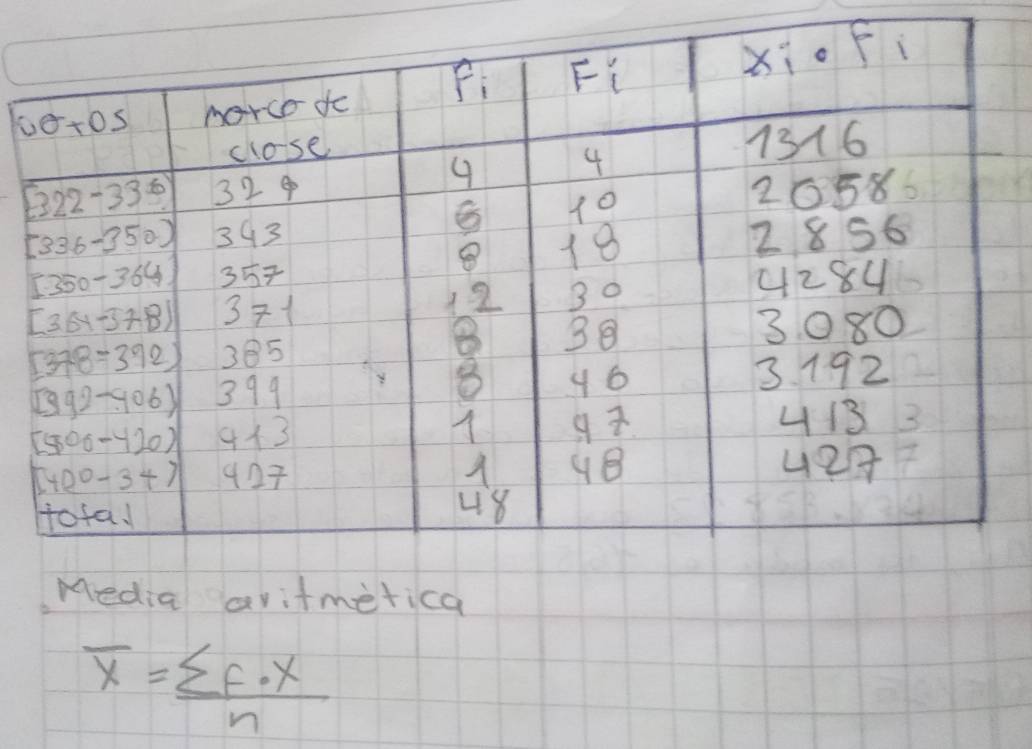 Datos marca de clase fi Fi xi • fi
[322-336) 329 4 4 1316
[336-350) 343 6 10 2058
[350-364) 357 8 18 2856
[364-378) 371 12 30 4284
[378-392) 385 8 38 3.080
[392-406) 399 8 46 3.192
[406-420) 413 1 47 413
[420-34) 427 1 48 427
total 48
Media aritmética
X̅ = Σf•x
n